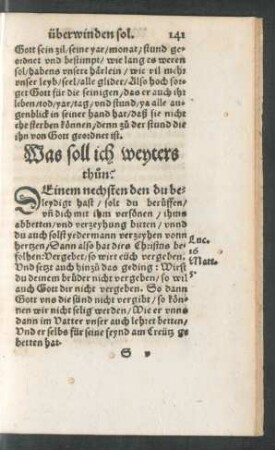 überwinden sol. 141
Gott sein zil/seine yar/monat/stund ge-
ordnet vnd bestimpt/wie lang es weren
sol/habens vnsere härlein/wie vil mehr
vnser leyb/seel/alle glider/Also hoch sor-
get Gott für die seinigen/das er auch ihr
leben/tod/yar/tag/vnd stund/ya alle au-
genblick in seiner hand hat/daß sie nicht
ehe sterben können/denn zů der stund die
ihn von Gott geordnet ist.
Was soll ich weyters
thůn?
DEinem nechsten den du be-
leydigt hast/solt du berüffen/
vñ dich mit ihm versönen/ihms
abbetten/vnd verzeyhung bitten/vnd
du auch solst yedermann verzyhen vonn
hertzen/Dann also hat dirs Christus be-
folhen: Vergebet/so wirt eüch vergeben.
Vnd setzt auch hinzů das geding: Wirst
du deinem brůder nicht vergeben/so wil
auch Gott dir nicht vergeben. So dann
Gott vns die sünd nicht vergibt/so kön-
nen wir nicht selig werden/Wie er vnns
dann im Vatter vnser auch lehret betten/
Vnd er selbs für seine feynd am Creütz ge
betten hat.
Luc.
16
Matt.
5
S v